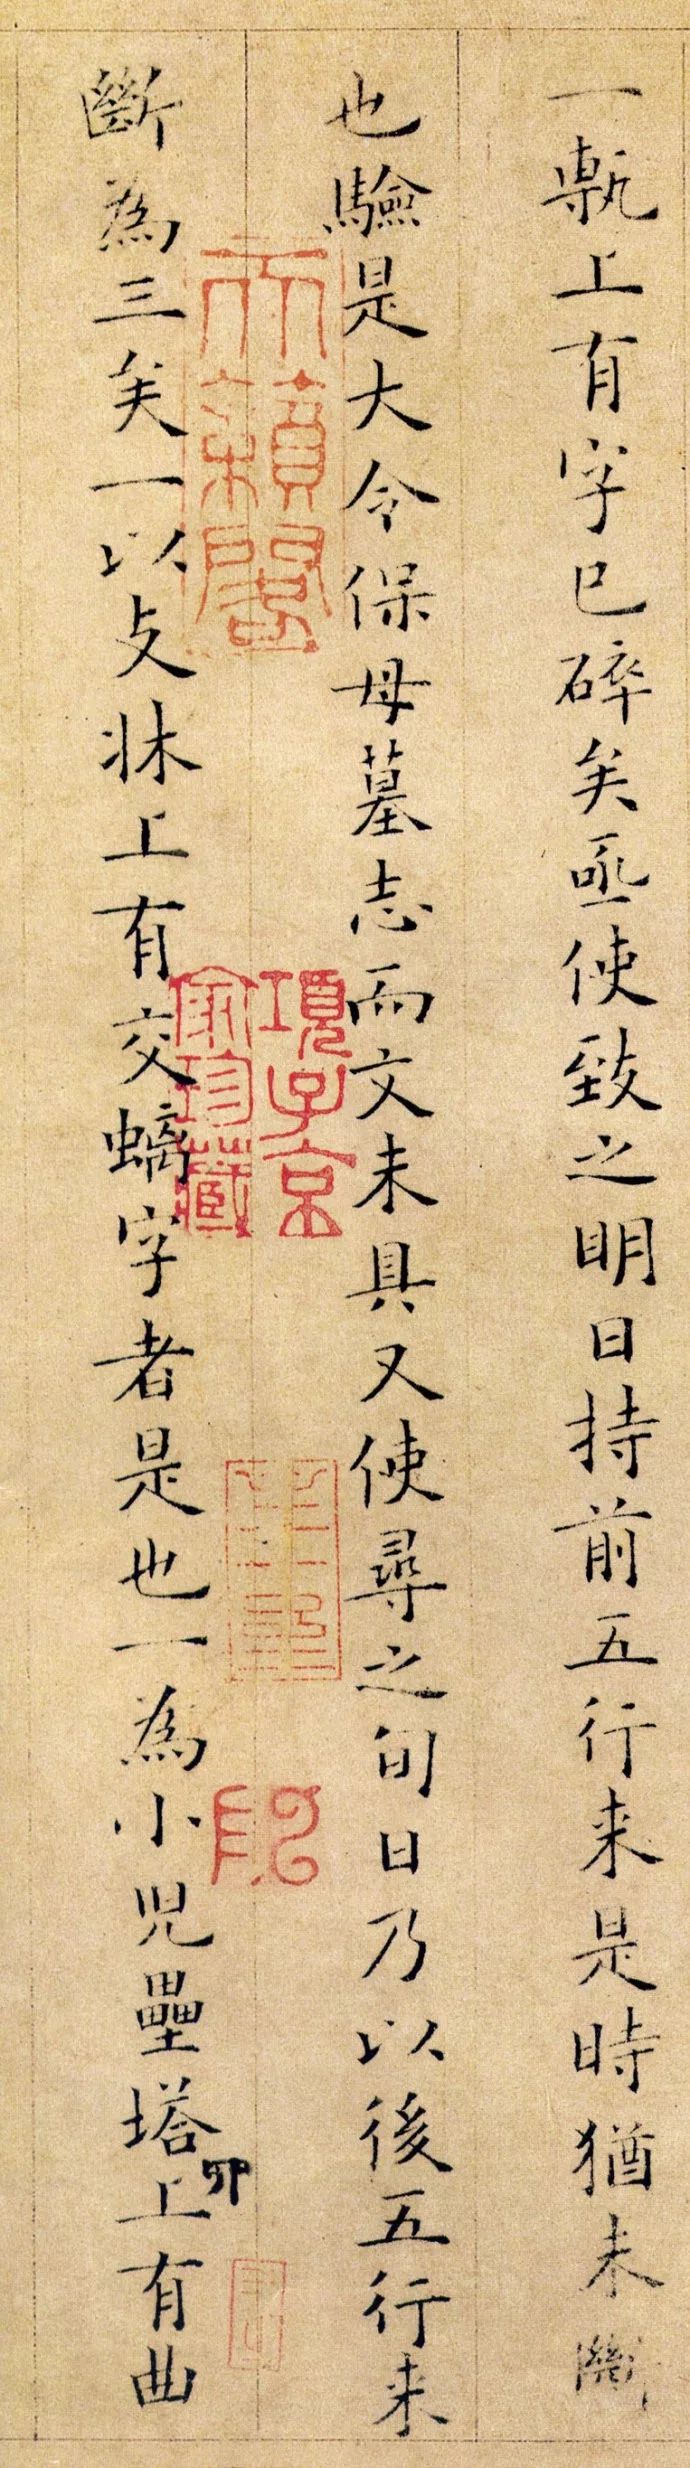 一甎上有字已碎矣亟使致之明日持前五行来是時猶未斷
也驗是大令保母墓志而文未具又使尋之旬日乃以後五行来
斷為三矣一以支牀上有交螭字者是也一為小兒壘塔上有曲
卯
天籟閣
項子京家珍藏